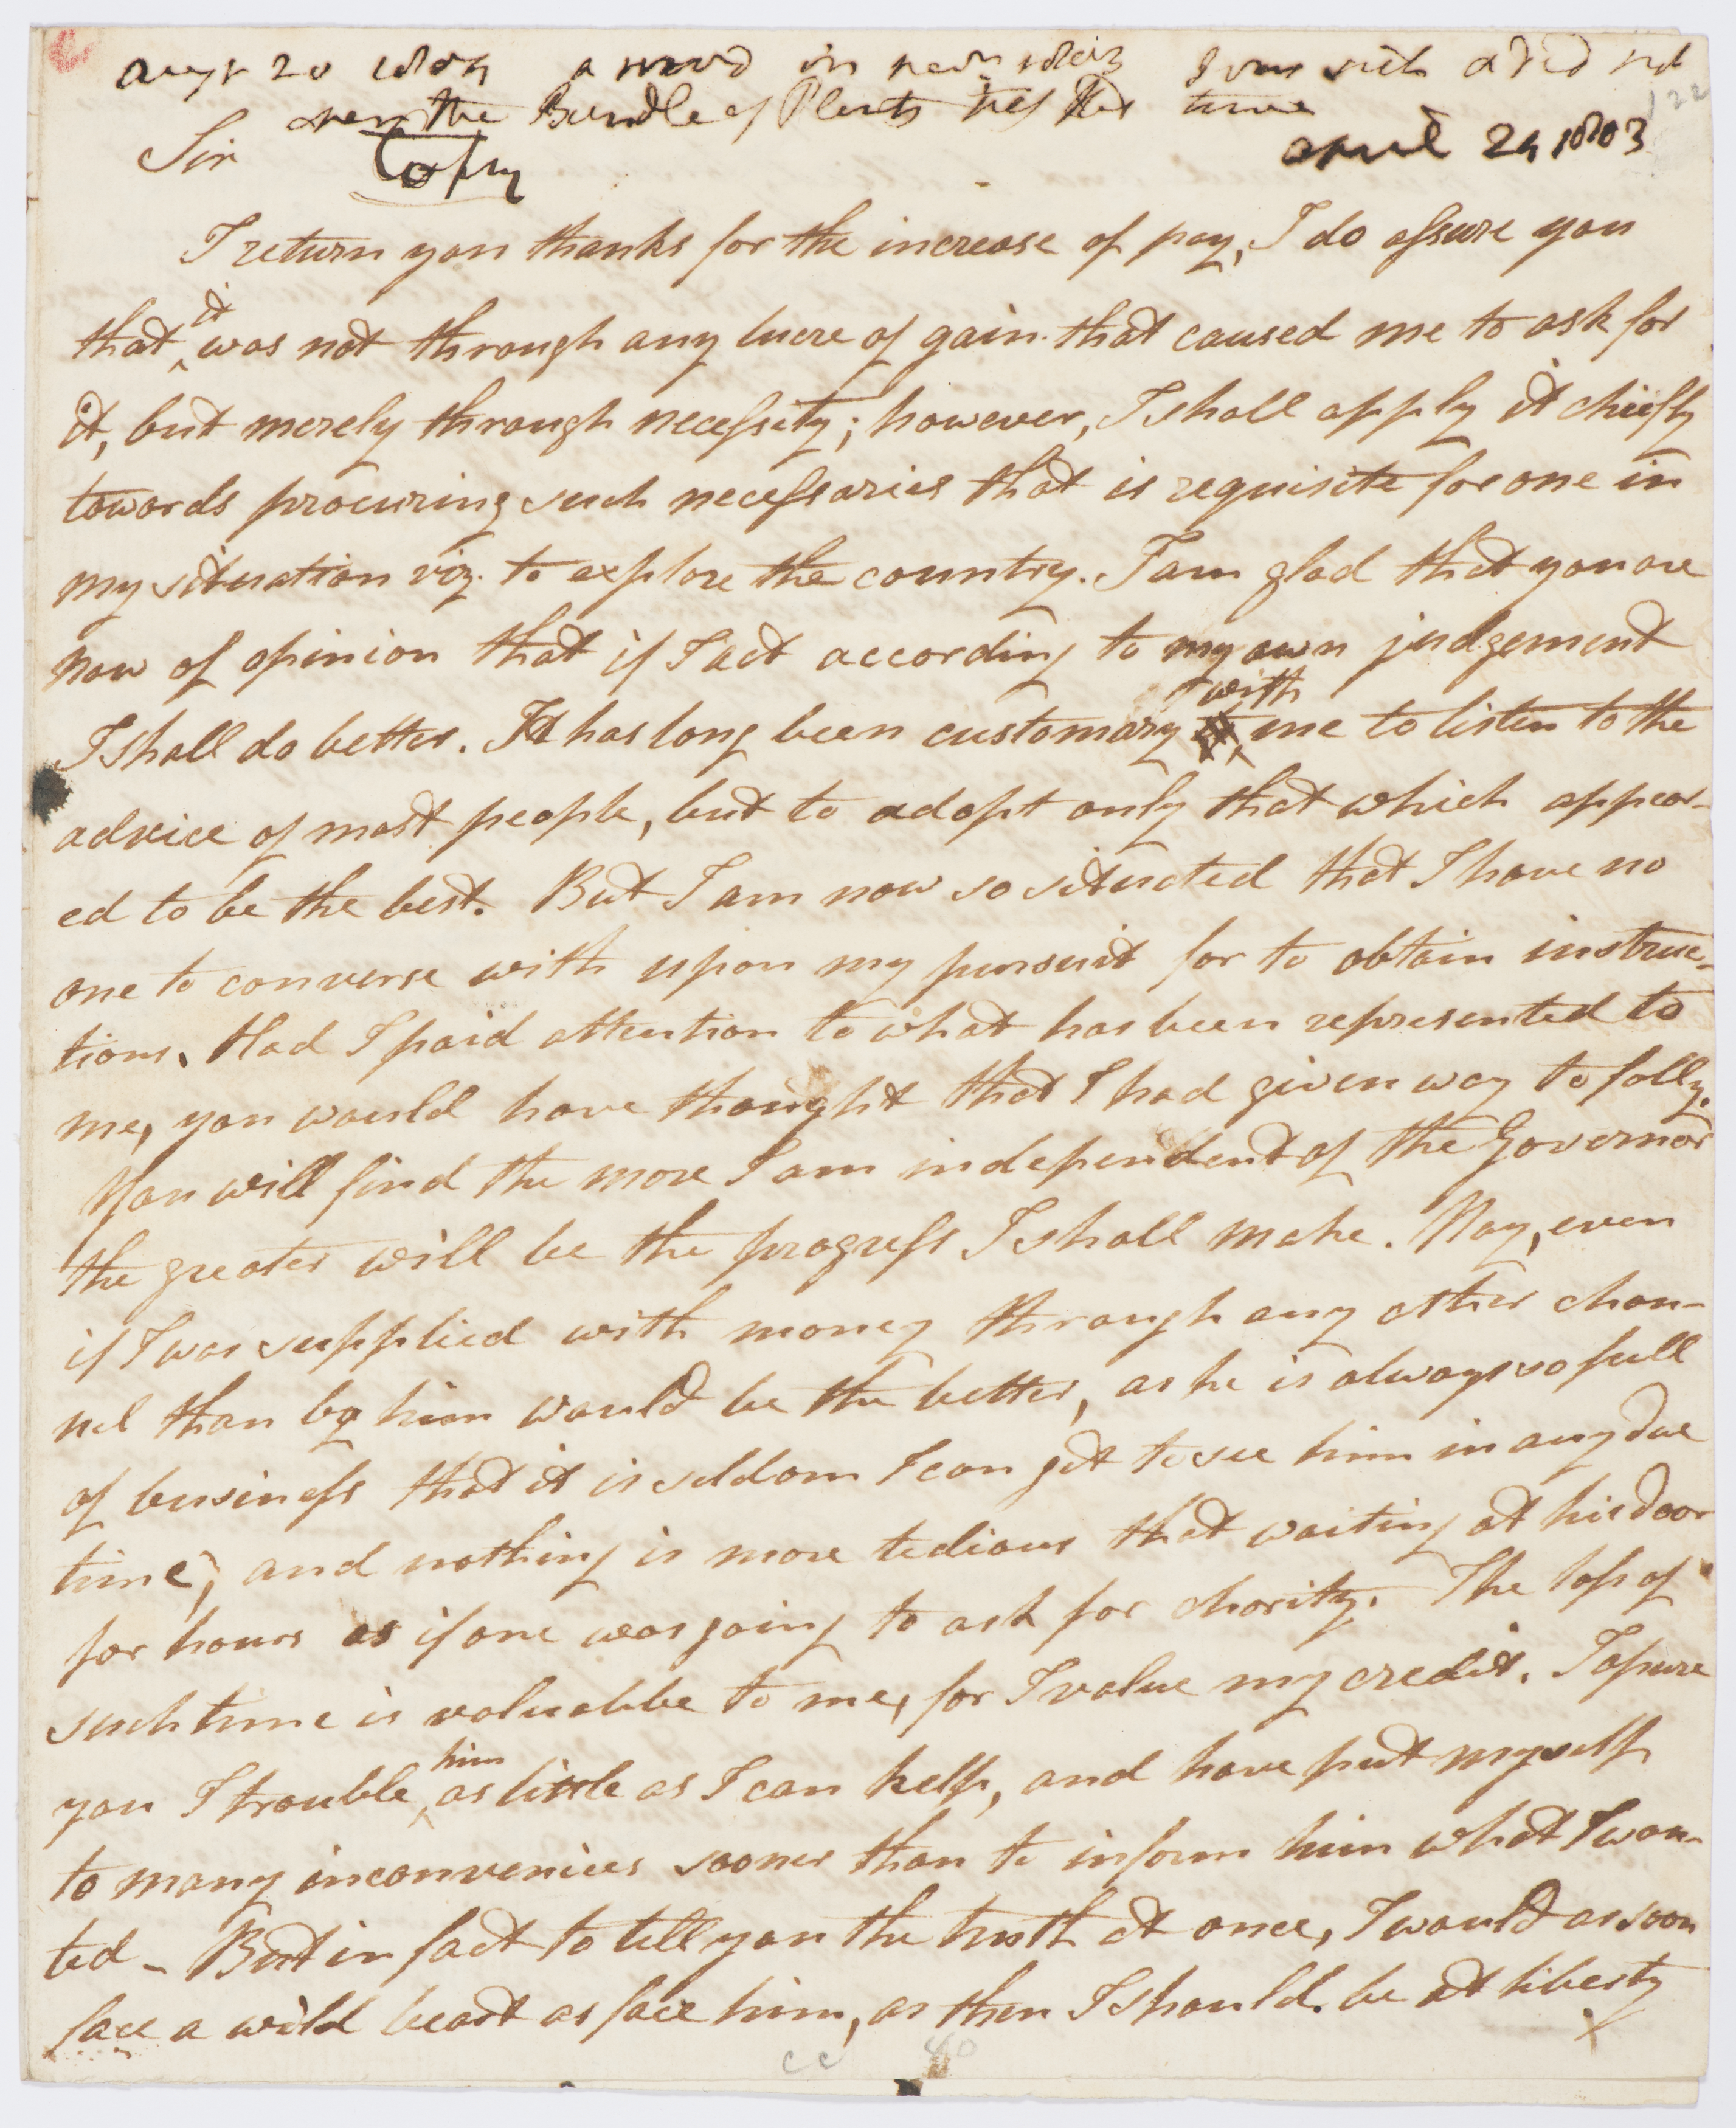 Augt 20 1804 a in I was sick & did not
the Bundle of Plants time
122
Sir Copy april 24 1803
I return you thanks for the increase of pay, I do assure you
that it was not through any lucre of gain that caused me to ask for
it, but merely through necessity; however, I shall apply it chiefly
towards procuring such necessaries that is requisite for one in
my situation viz. to explore the country. I am glad that you are
now of opinion that if I act according to my own judgement
I shall do better. It has long been customary with me to listen to the
advice of most people, but to adopt only that which appear-
ed to be the best. But I am now so situated that I have no
one to converse with upon my pursuit for to obtain instruc-
tions. Had I paid attention to what has been represented to
me, you would have thought that I had given way to folly.
You will find the more I am independent of the Governor
the greater will be the progress I shall make. Nay, even
if I was supplied with money through any other chan-
nel than by him would be the better, as he is always so full
of business that it is seldom I can get to see him in any due
time, and nothing is more tedious that waiting at his door
for hours as if one was going to ask for charity. The loss of
such time is valuabbe to me, for I value my credit. I assure
you I trouble him as little as I can help, and have put myself
to many inconvenices sooner than to inform him what I wan-
ted - But in fact to tell you the truth at once, I would as soon
face a wild beast as face him, as then I should be at liberty
X
CC 80